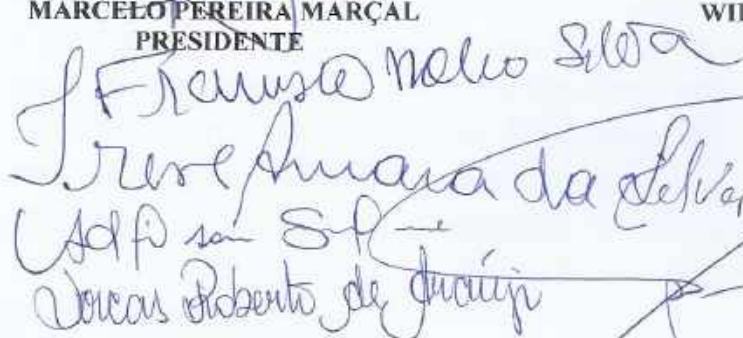 MARCELO PEREIRA MARÇAL WIL
PRESIDENTE
Francisco Silva
Irene Amara da Silva
Dorcas Roberto de Araújo